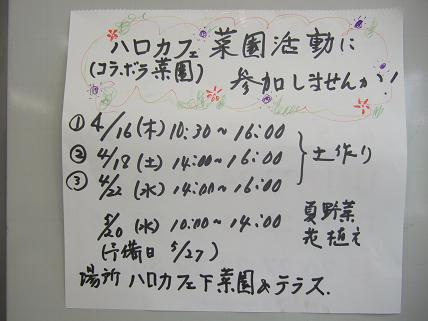 ハロカフェ 菜園活動に
(コラボラ菜園) 参加しませんか!
① 4/16 (木) 10:30~16:00
② 4/18 (土) 14:00~16:00
③ 4/22 (水) 14:00~16:00
土作り
5/20 (水) 10:00~14:00
(予備日 5/27)
夏野菜
花植え
場所 ハロカフェ下菜園&テラス.